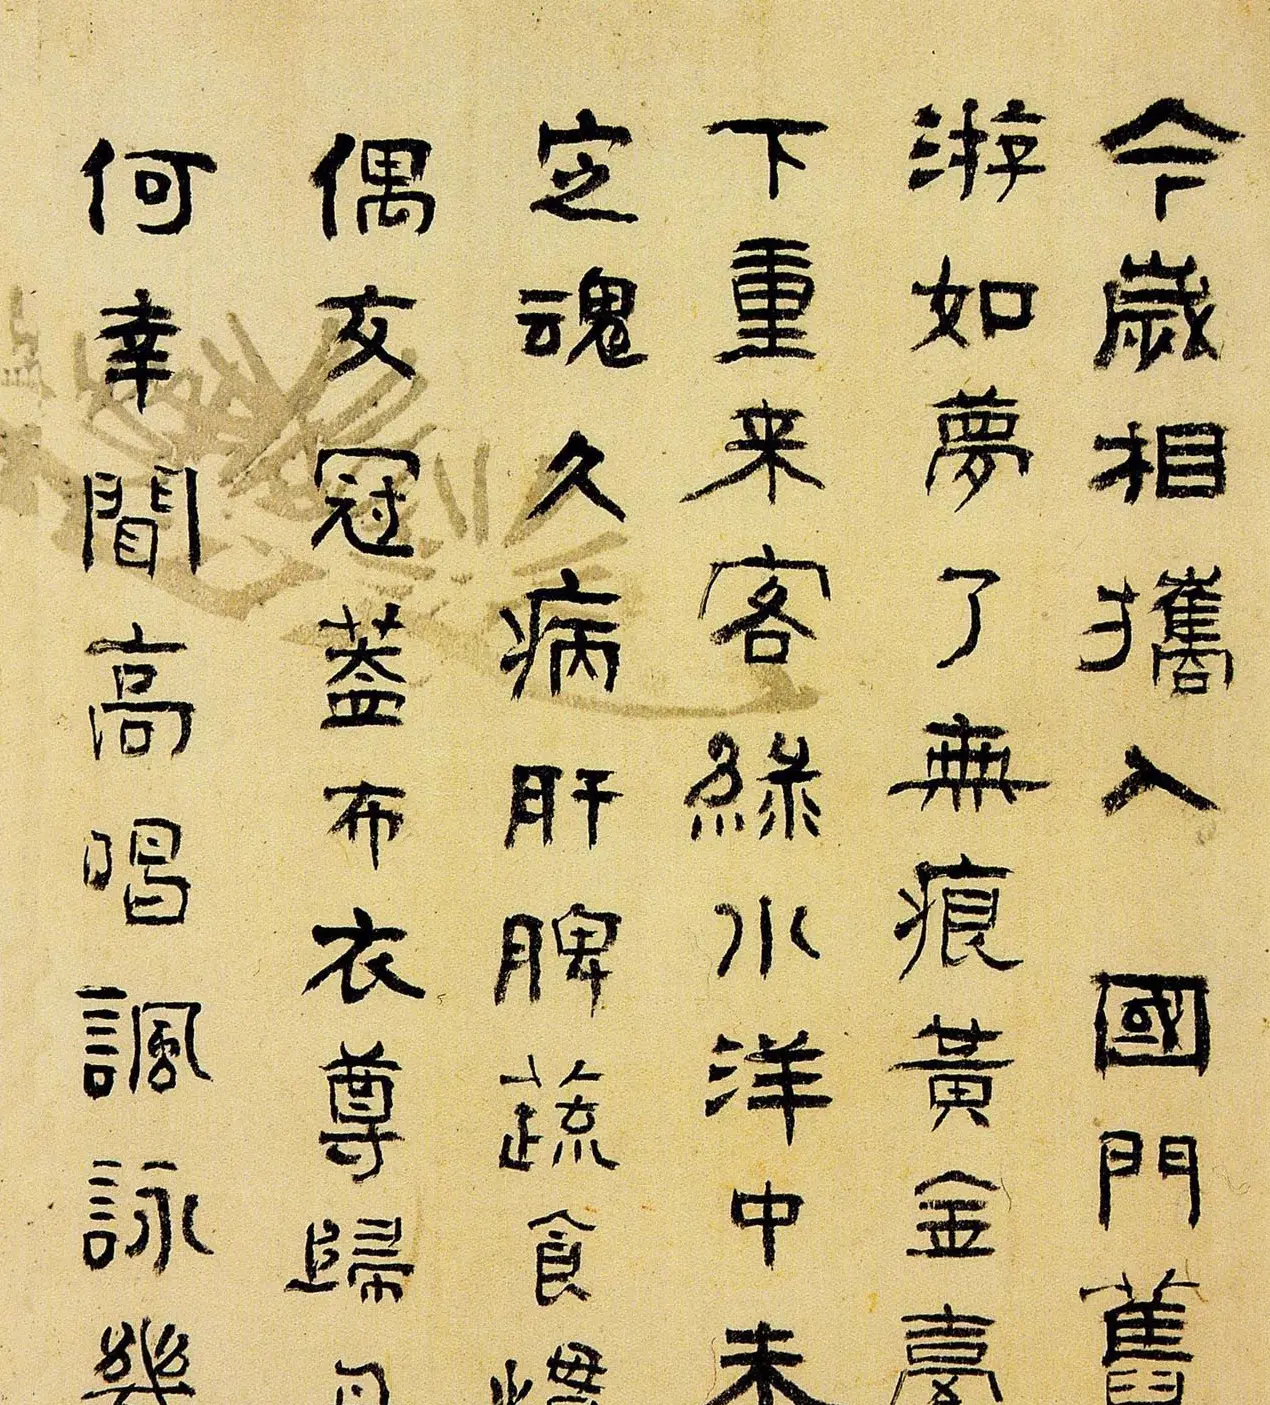 今歲相攜入國門舊
游如夢了無痕黃金臺
下重来客綠水洋中未
定魂久病肝脾蔬食慣
偶友冠蓋布衣尊歸
何幸聞高唱諷詠幾